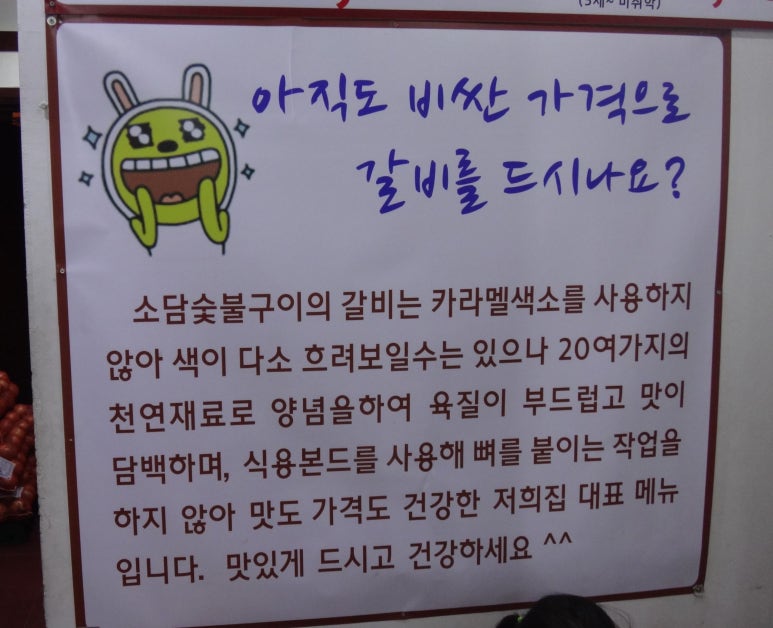 (5세~ 미취학)
아직도 비싼 가격으로
갈비를 드시나요?
소담숯불구이의 갈비는 카라멜색소를 사용하지
않아 색이 다소 흐려보일수는 있으나 20여가지의
천연재료로 양념을하여 육질이 부드럽고 맛이
담백하며, 식용본드를 사용해 뼈를 붙이는 작업을
하지 않아 맛도 가격도 건강한 저희집 대표 메뉴
입니다. 맛있게 드시고 건강하세요 ^^